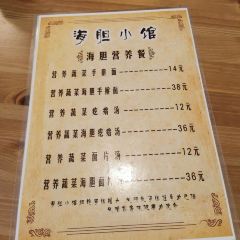 海胆小馆
海胆营养餐
营养蔬菜手擀面——14元
营养蔬菜海胆手擀面——38元
营养蔬菜疙瘩汤——12元
营养蔬菜海胆疙瘩汤——36元
营养蔬菜面片汤——12元
营养蔬菜海胆面片——36元
海胆小馆